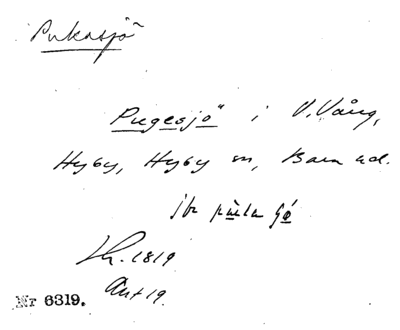 Pukasjö
"Pugesjö" i V. Vång,
Hyby, Hyby sn, Bara hd.
jfr
1819
Ant 19.
Nr 6319.